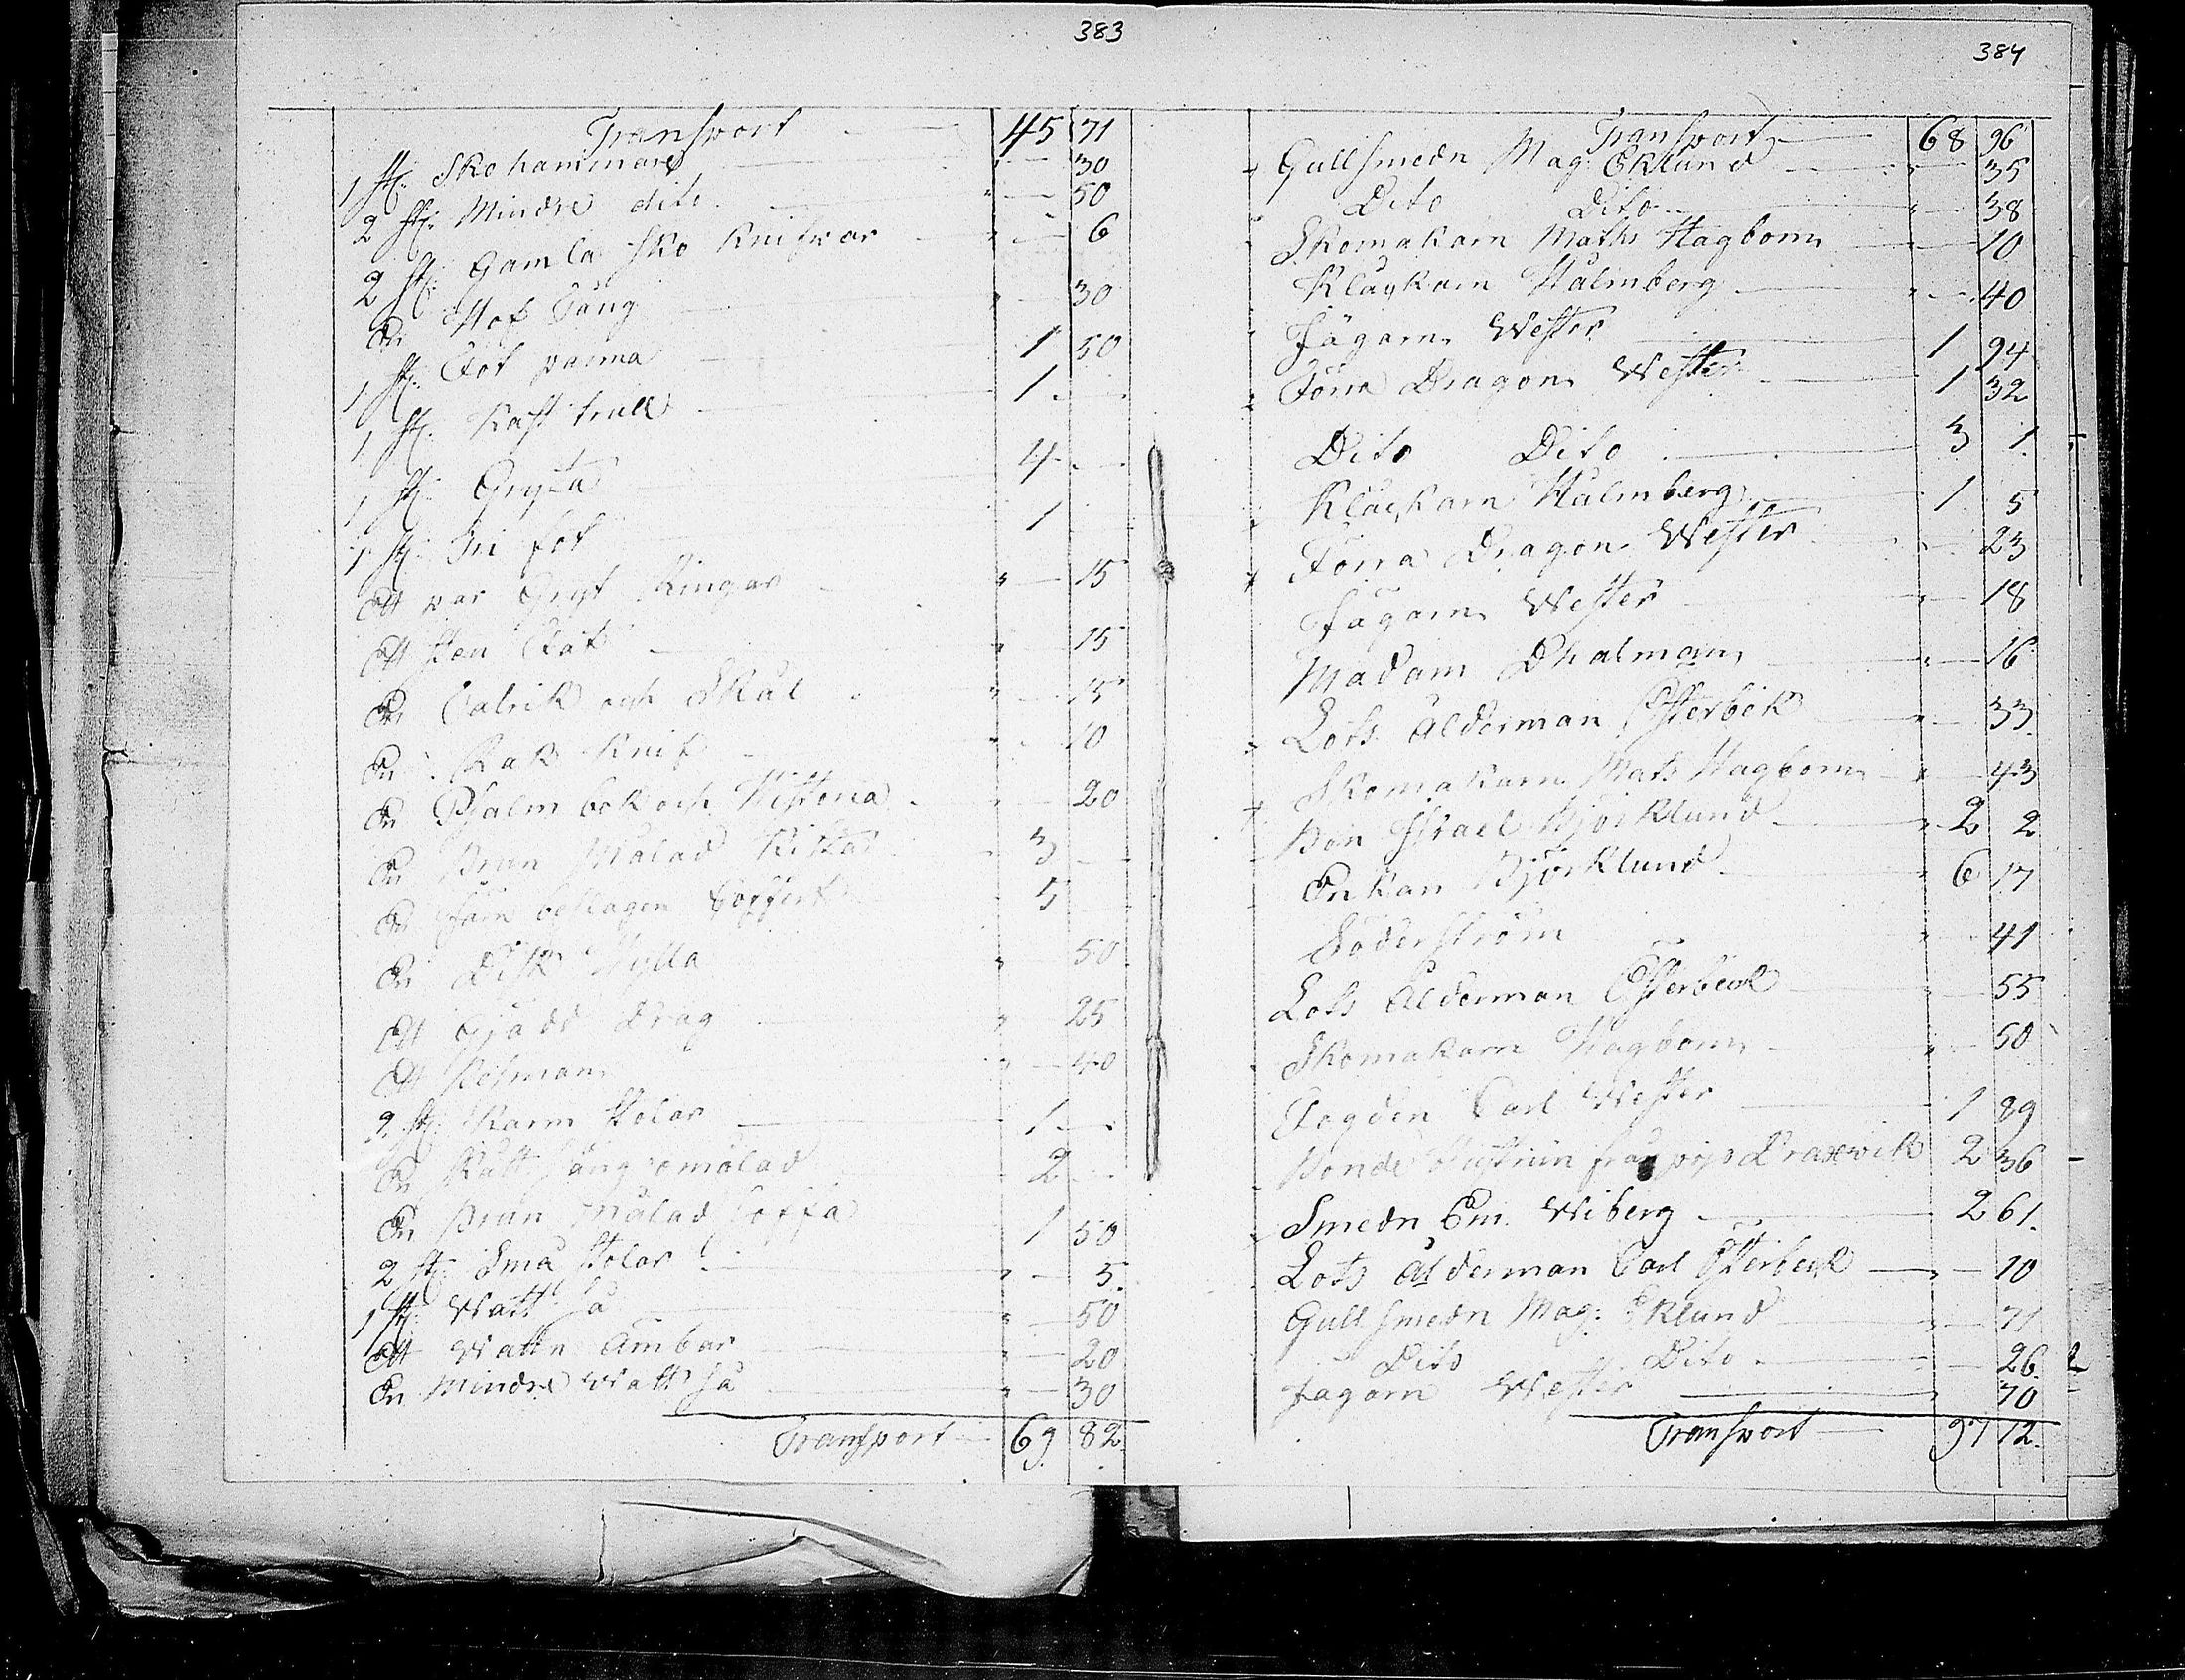 383
Transport 45 71
1 st: Skohammare " 30
2 st: Mindre dito " 50
2 st: Gamla Sko Knifvar " 6
En Hof Tång " 30
1 st: Fot panna 1 50
1 st: Kastrull 1
1 st: Gryta 4
1 st: Tri fot 1
Ett par Gryt Ringar " 15
Ett sten Fat " 15
En Talrik och Skål " 15
En Rak Knif " 10
En Psalm bok och Historia " 20
En Brun Målad Kista 3
En Järn beslagen Coffert 5
En Disk Hylla " 50
Ett Gjädd Drag " 25
Ett " 40
2 st: Karm Stolar 1
En Säng omålad 2
En Brun Målad Soffa 1 50
2 st: Små Stolar " 5
1 st: Watt så " 50
Ett Wattn Ämbar " 20
En Mindre Watt så " 30
Transport 69 82
384
Transport 68 96
Gullsmedn Mag: Eklund " 35
Dito Dito " 38
Skomakarn Maths Hagbom " 10
Klåckarn Malmberg " 40
Jägarn Wester 1 94
Förra Dragon Wester 1 32
Dito Dito 3 1
Klåckarn Malmberg 1 5
Förra Dragon Wester " 23
Jägarn Wester " 18
Madam Dhalman " 16
Lots Ålderman Österbek " 33
Skomakarn Mats Hagbom " 43
Bon Israel Björklund 2 2
Enkan Björklund 6 17
Söderström " 41
Lots Ålderman Österbeck 55
Skomakarn Hagbom " 50
Fogden Carl Wester 1 89
Bonde Hustrun från Draxvik 2 36
Smedn Em. Wiberg 2 61
Lots Ålderman Carl Österbeck " 10
Gullsmedn Mag: Eklund " 71
Dito Dito " 26
Jagarn Wester " 70
Transport 97 12